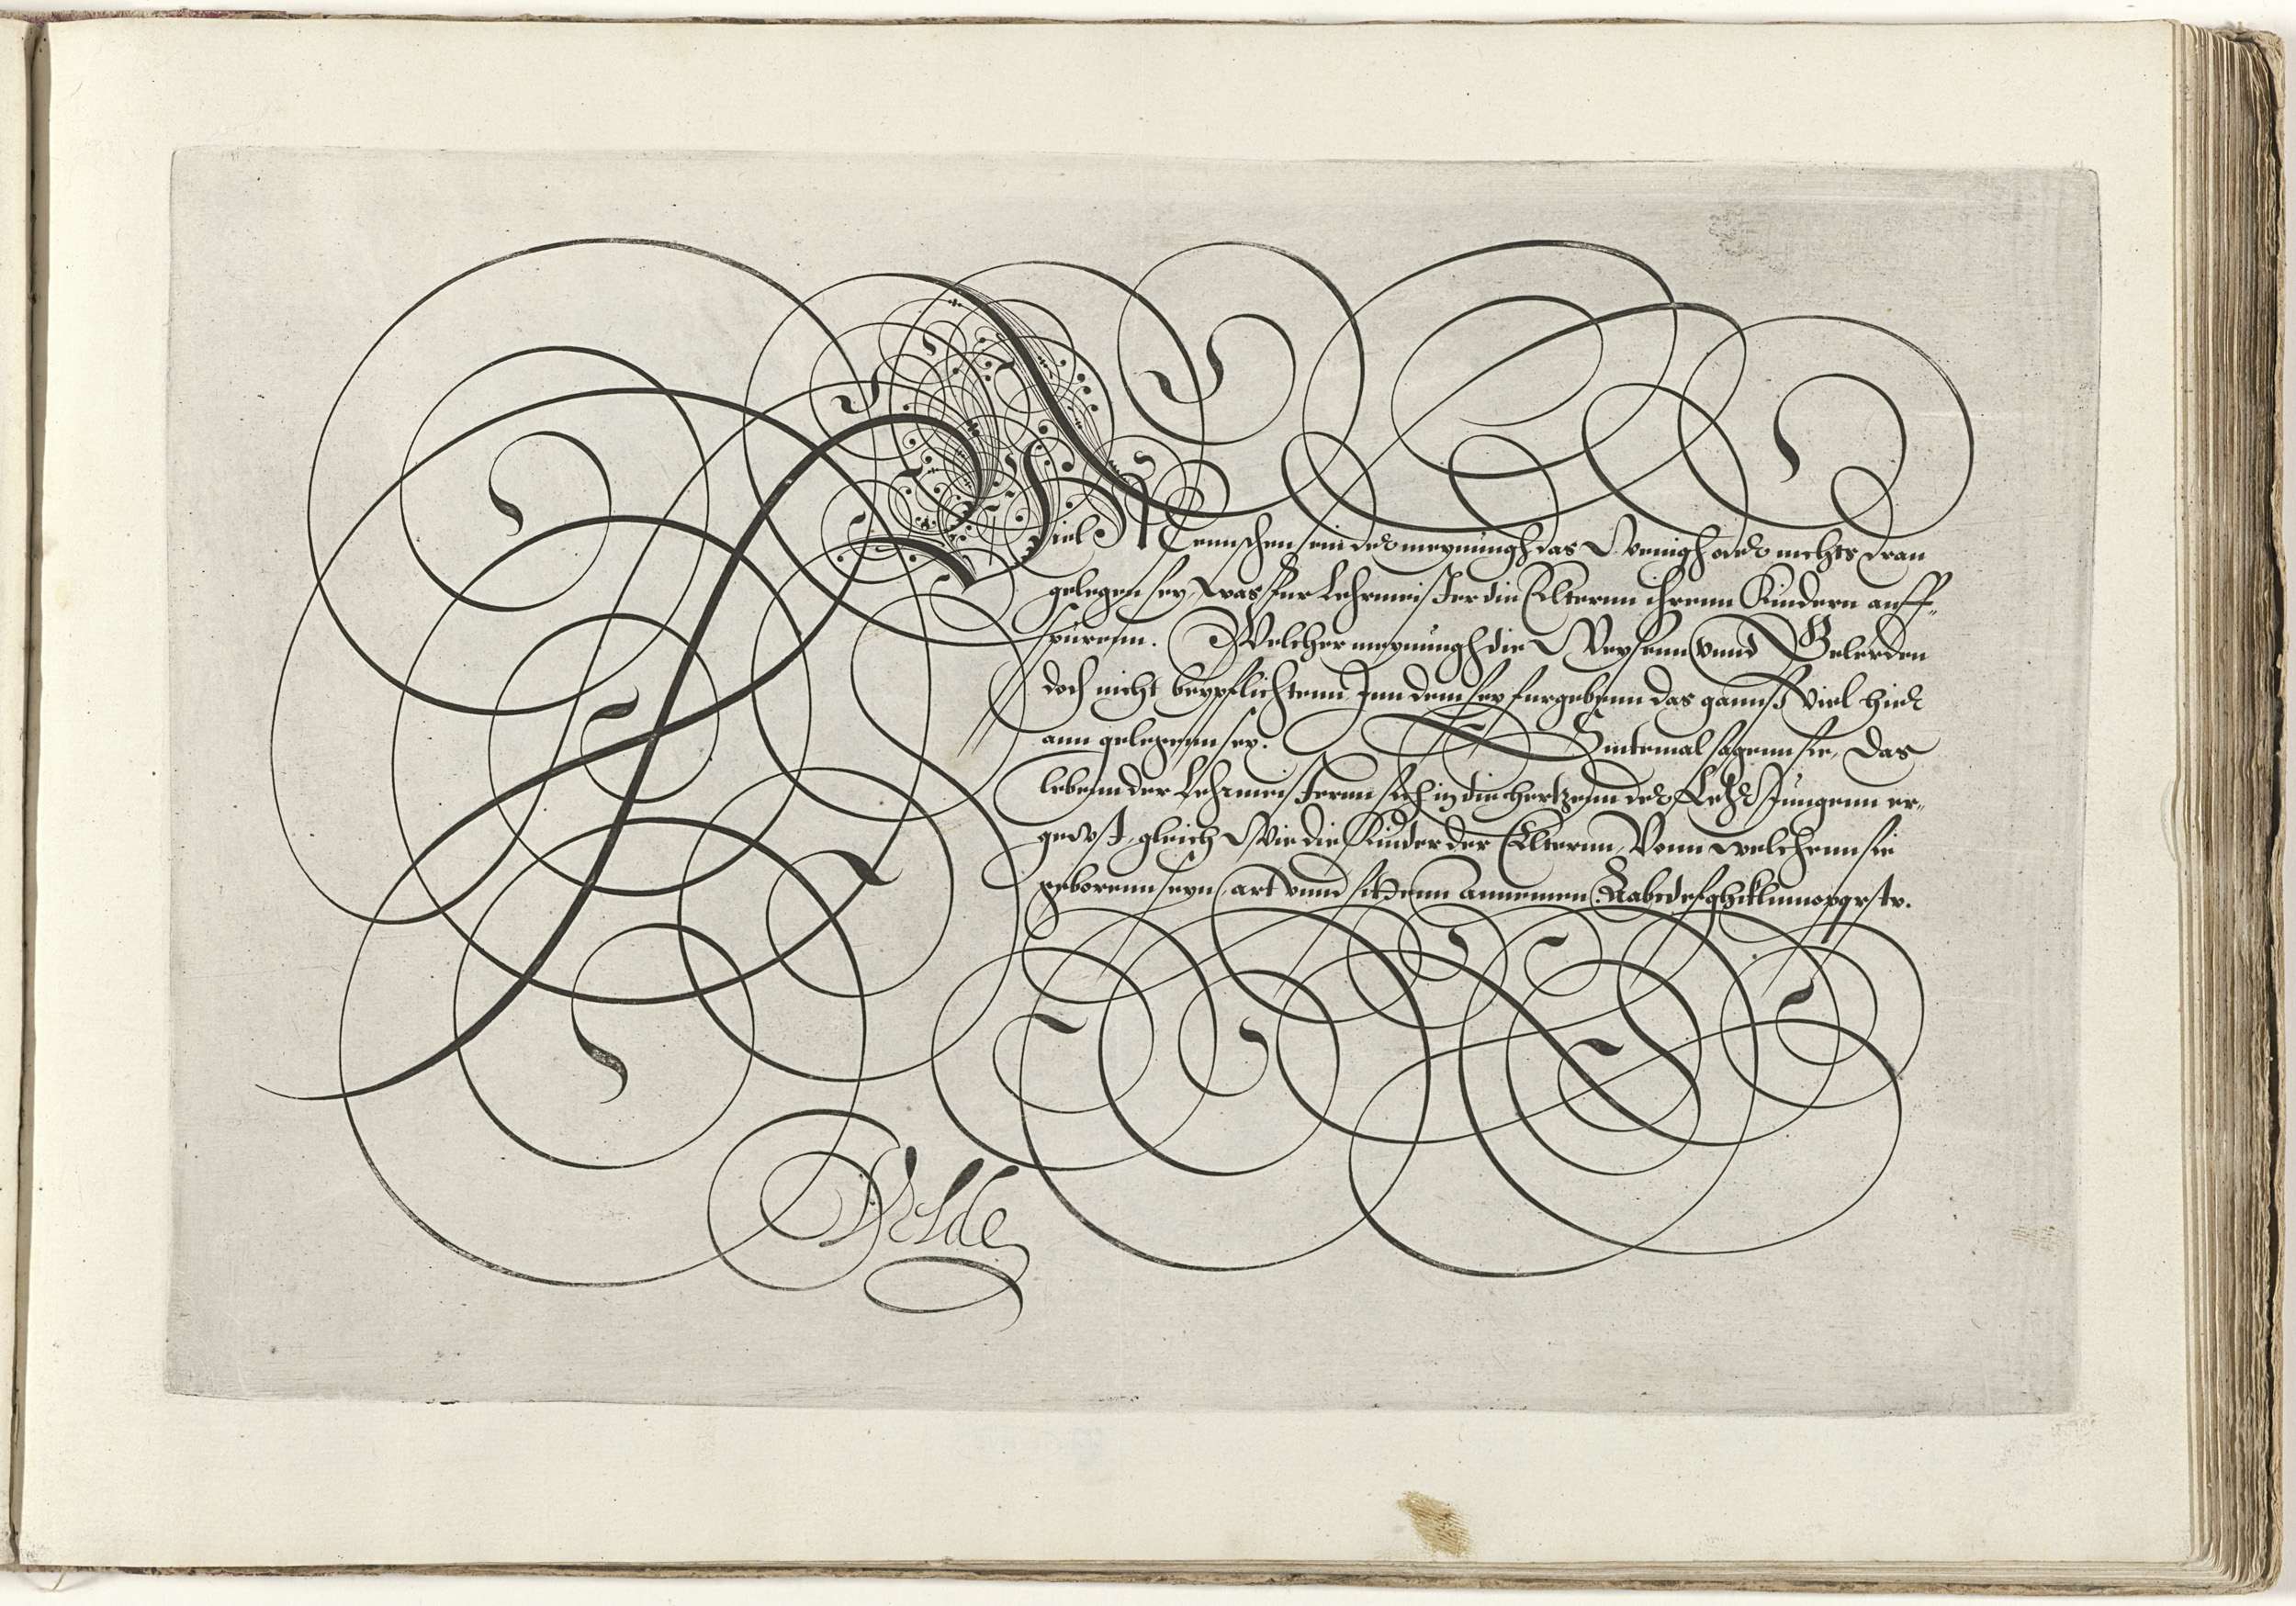 Viel Mennschen sein der meynungh das Wenigh oder nichts dran
gelegen sey, was fur Lehrmeister die Elternn ihrenn Kindern auff-
Welcher meynungh die Weysenn vnnd Gelerden
doch nicht beypflichtenn, Inn dem sey furgebenn das gannss viel hier
ann gelegenn sey. Sintemal sagenn sie, Das
lebenn der Lehrmeisternn sich in die hertzenn der Lehr Jungenn er-
geust, gleich Wie die Kinder der Elternn, Vonn welchenn sie
geborenn seyn, art vnnd sittenn annemen. Aabcdefghiklmnopqrstv.
Velde